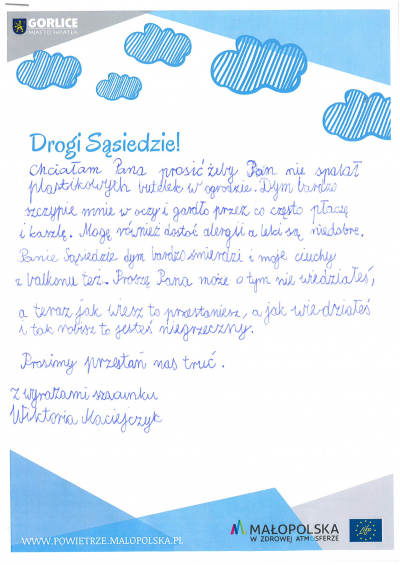 GORLICE
MIASTO ŚWIATŁA
Drogi Sąsiedzie!
Chciałam Pana prosić żeby Pan nie spalał
plastikowych butelek w ogrodzie. Dym bardzo
szczypie mnie w oczy i gardło przez co często płaczę
i kaszlę. Mogę również dostać alergii a leki są niedobre.
Panie Sąsiedzie dym bardzo śmierdzi i moje ciuchy
z balkonu też. Proszę Pana może o tym nie wiedziałeś,
a teraz jak wiesz to przestaniesz, a jak wiedziałeś
i tak robisz to jesteś niegrzeczny.
Prosimy przestań nas truć.
Z wyrazami szacunku
Wiktoria Maciejczyk
WWW.POWIETRZE.MALOPOLSKA.PL
MAŁOPOLSKA
W ZDROWEJ ATMOSFERZE
life